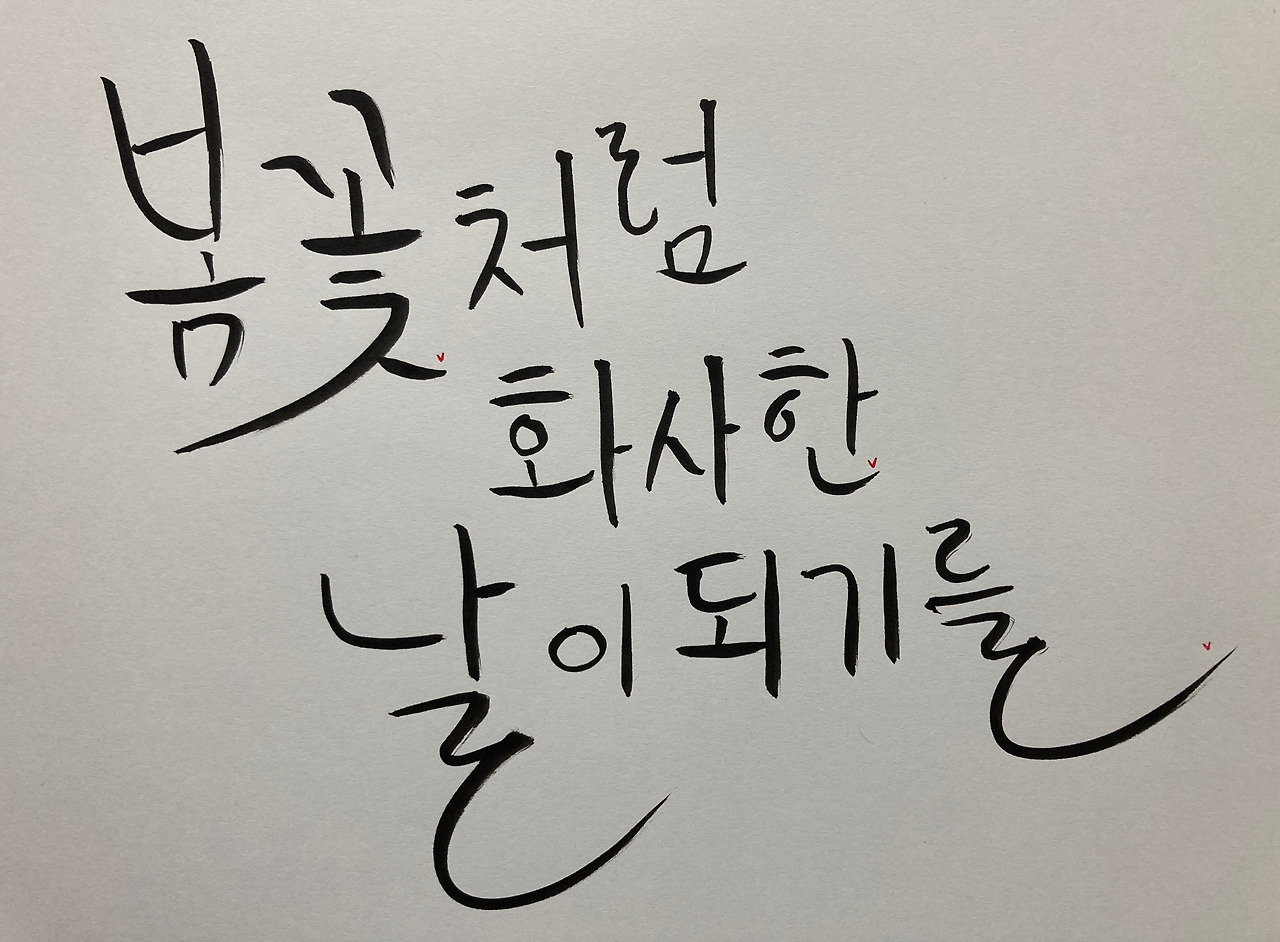 봄꽃처럼
화사한
날이 되기를